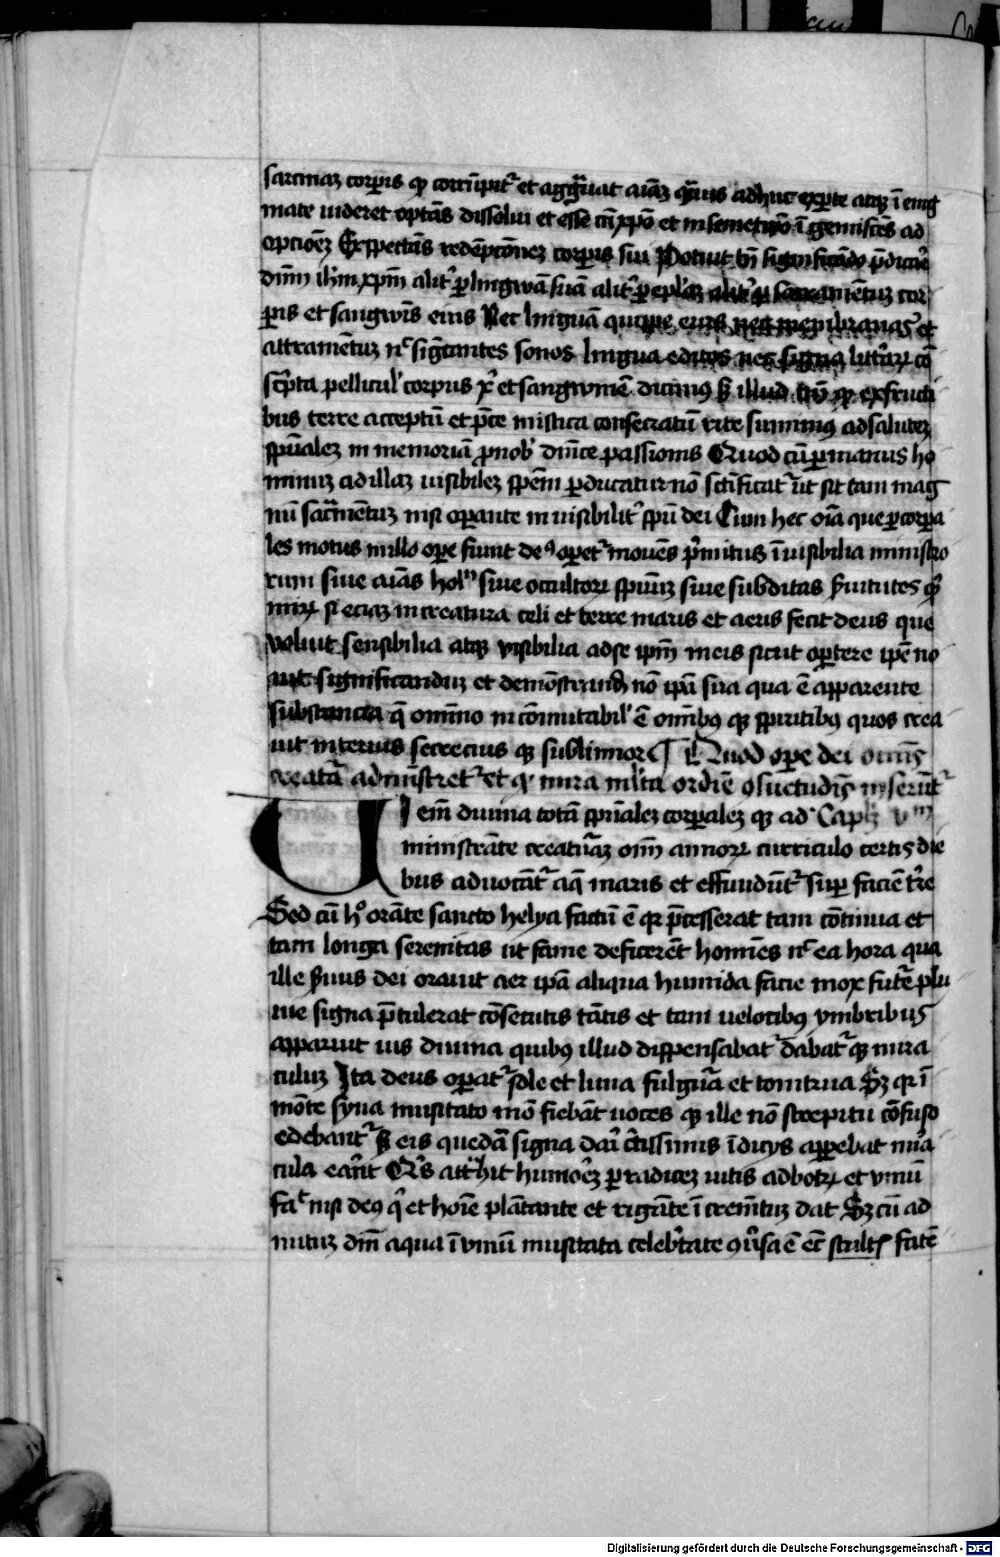 sarcinaꝫ corꝑis qͥ corrūpit᷑ et aggͣuat aiāꝫ qͣuis adhuc ex ꝑte atqꝫ ī enig
mate uideret optās dissolui et esse cū xp̄o et in semetip̄o īgemiscēs ad
opcioēꝫ Exspectās redēpcōneꝫ corꝑis sui Potuit tn̄ significādo p̄dicare
dnm̄ ihm̄ xpm̄ alit᷑ ꝑ lingwā suā alit᷑ ꝑ epl̄aꝫ alit᷑ ꝑ sacramētuꝫ cor
ꝑis et sangwīs eius Nec linguā quippe eius nec membranas et
attramētuꝫ nͨ siḡtantes sonos lingua editos nec signa litt᷑aꝝ cō
sc̄pta pellicul᷑ corpus xͥ et sangwinē dicimꝰ sꝫ illud tm̄ qͥ ex fructi
bus terre acceptū et p̄ce mistica consecratū rite sumimꝰ ad saluteꝫ
sp̄ualeꝫ in memoriā ꝓ nobᷤ dn̄ice passionis Quod cū ꝑ manus ho
minuꝫ ad illaꝫ uisibileꝫ spēm ꝑducatur nō sc̄ificat᷑ ut sit tam mag
nū sacͣmētuꝫ nisi oꝑante inuisibilit᷑ spū dei Cum hec oīa que ꝑ corpa
les motus in illo oꝑe fiunt deꝰ oꝑet᷑ mouēs p̄mitus īuisibilia ministro
rum siue aiās hoīm siue occultoꝝ spirituū siue subditas s̄uitutes qͥd
miꝝ si eciaꝫ in creatura celi et terre maris et aeris fecit deus que
voluit sensibilia atqꝫ visibilia ad se ipm̄ in eis sicut oꝑtere ipē no
uit significanduꝫ et demōstrandū nō ipā sua qua ē apparente
substancia q̄ omīno incōmutabil᷑ ē omībꝰ qꝫ spiritibꝰ quos crea
uit interius secrecius qꝫ sublimior ¶ Quod oꝑe dei omīs
creatᷓa administret᷑ et qͥ mira mlͭa ordīe ꝯsuetudīs inserūt᷑
Uiem̄ diuina totā sp̄ualeꝫ corꝑaleꝫ qꝫ ad Caplꝫ vᵐ
ministrāte creatuᷓaꝫ om̄ī annoꝝ curriculo certis die
bus aduocāt᷑ aq̄ maris et effundūt᷑ suꝑ faciē t᷑re
Sed cū hͦ orāte sancto helya factū ē qꝛ p̄cesserat tam cōtinua et
tam longa serenitas ut fame deficerēt homīes nͨ ea hora qua
ille s̄uus dei orauit aer ipā aliqua humida facie mox futᷓe plu
uie signa p̄tulerat cōsecutis tātis et tam uelocibꝰ ymbribus
apparuit uis diuina quibꝰ illud dispensabat᷑ dabat᷑ qꝫ mira
culuꝫ Ita deus oꝑat᷑ sole et luna fulguᷓa et tonitrua Sꝫ qꝛ ī
mōte syna inusitato mō fiebāt uoces qꝫ ille nō strepitu cōfuso
edebant᷑ sꝫ eis quedā signa dari c̄tissimis īdicijs apꝑebat mirͣa
cula erāt Qͥs att᷑hit humorēꝫ ꝑ radiceꝫ uitis ad botꝝ et vinū
facͭ nisi deꝰ qͥ et hoīe plātante et rigāte īcremētuꝫ dat Sꝫ cū ad
nutuꝫ dn̄i aqua ī vinū inusitata celeb᷑tate ꝯuͥsa ē ec̄ stultꝭ fatē